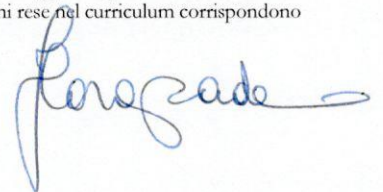 ni rese nel curriculum corrispondono